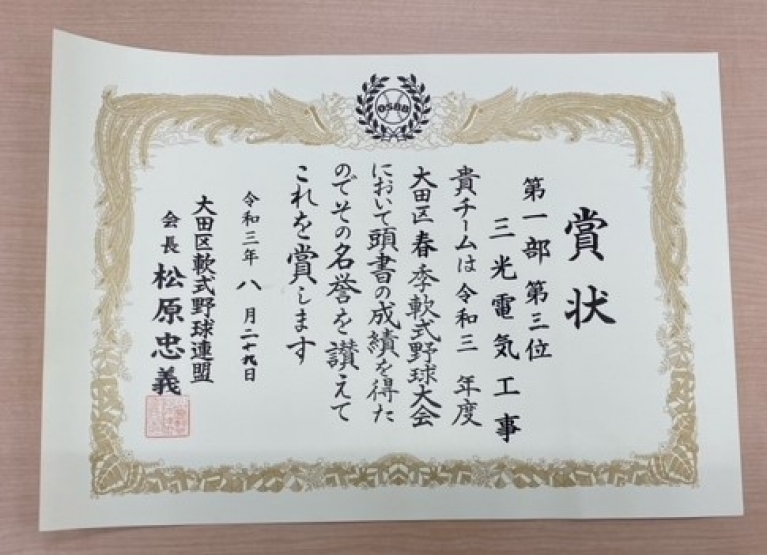 OSBB
賞状
第一部第三位
三光電気工事
貴チームは令和三年度
大田区春季軟式野球大会
において頭書の成績を得た
のでその名誉を讃えて
これを賞します
令和三年八月二十九日
大田区軟式野球連盟
会長 松原忠義